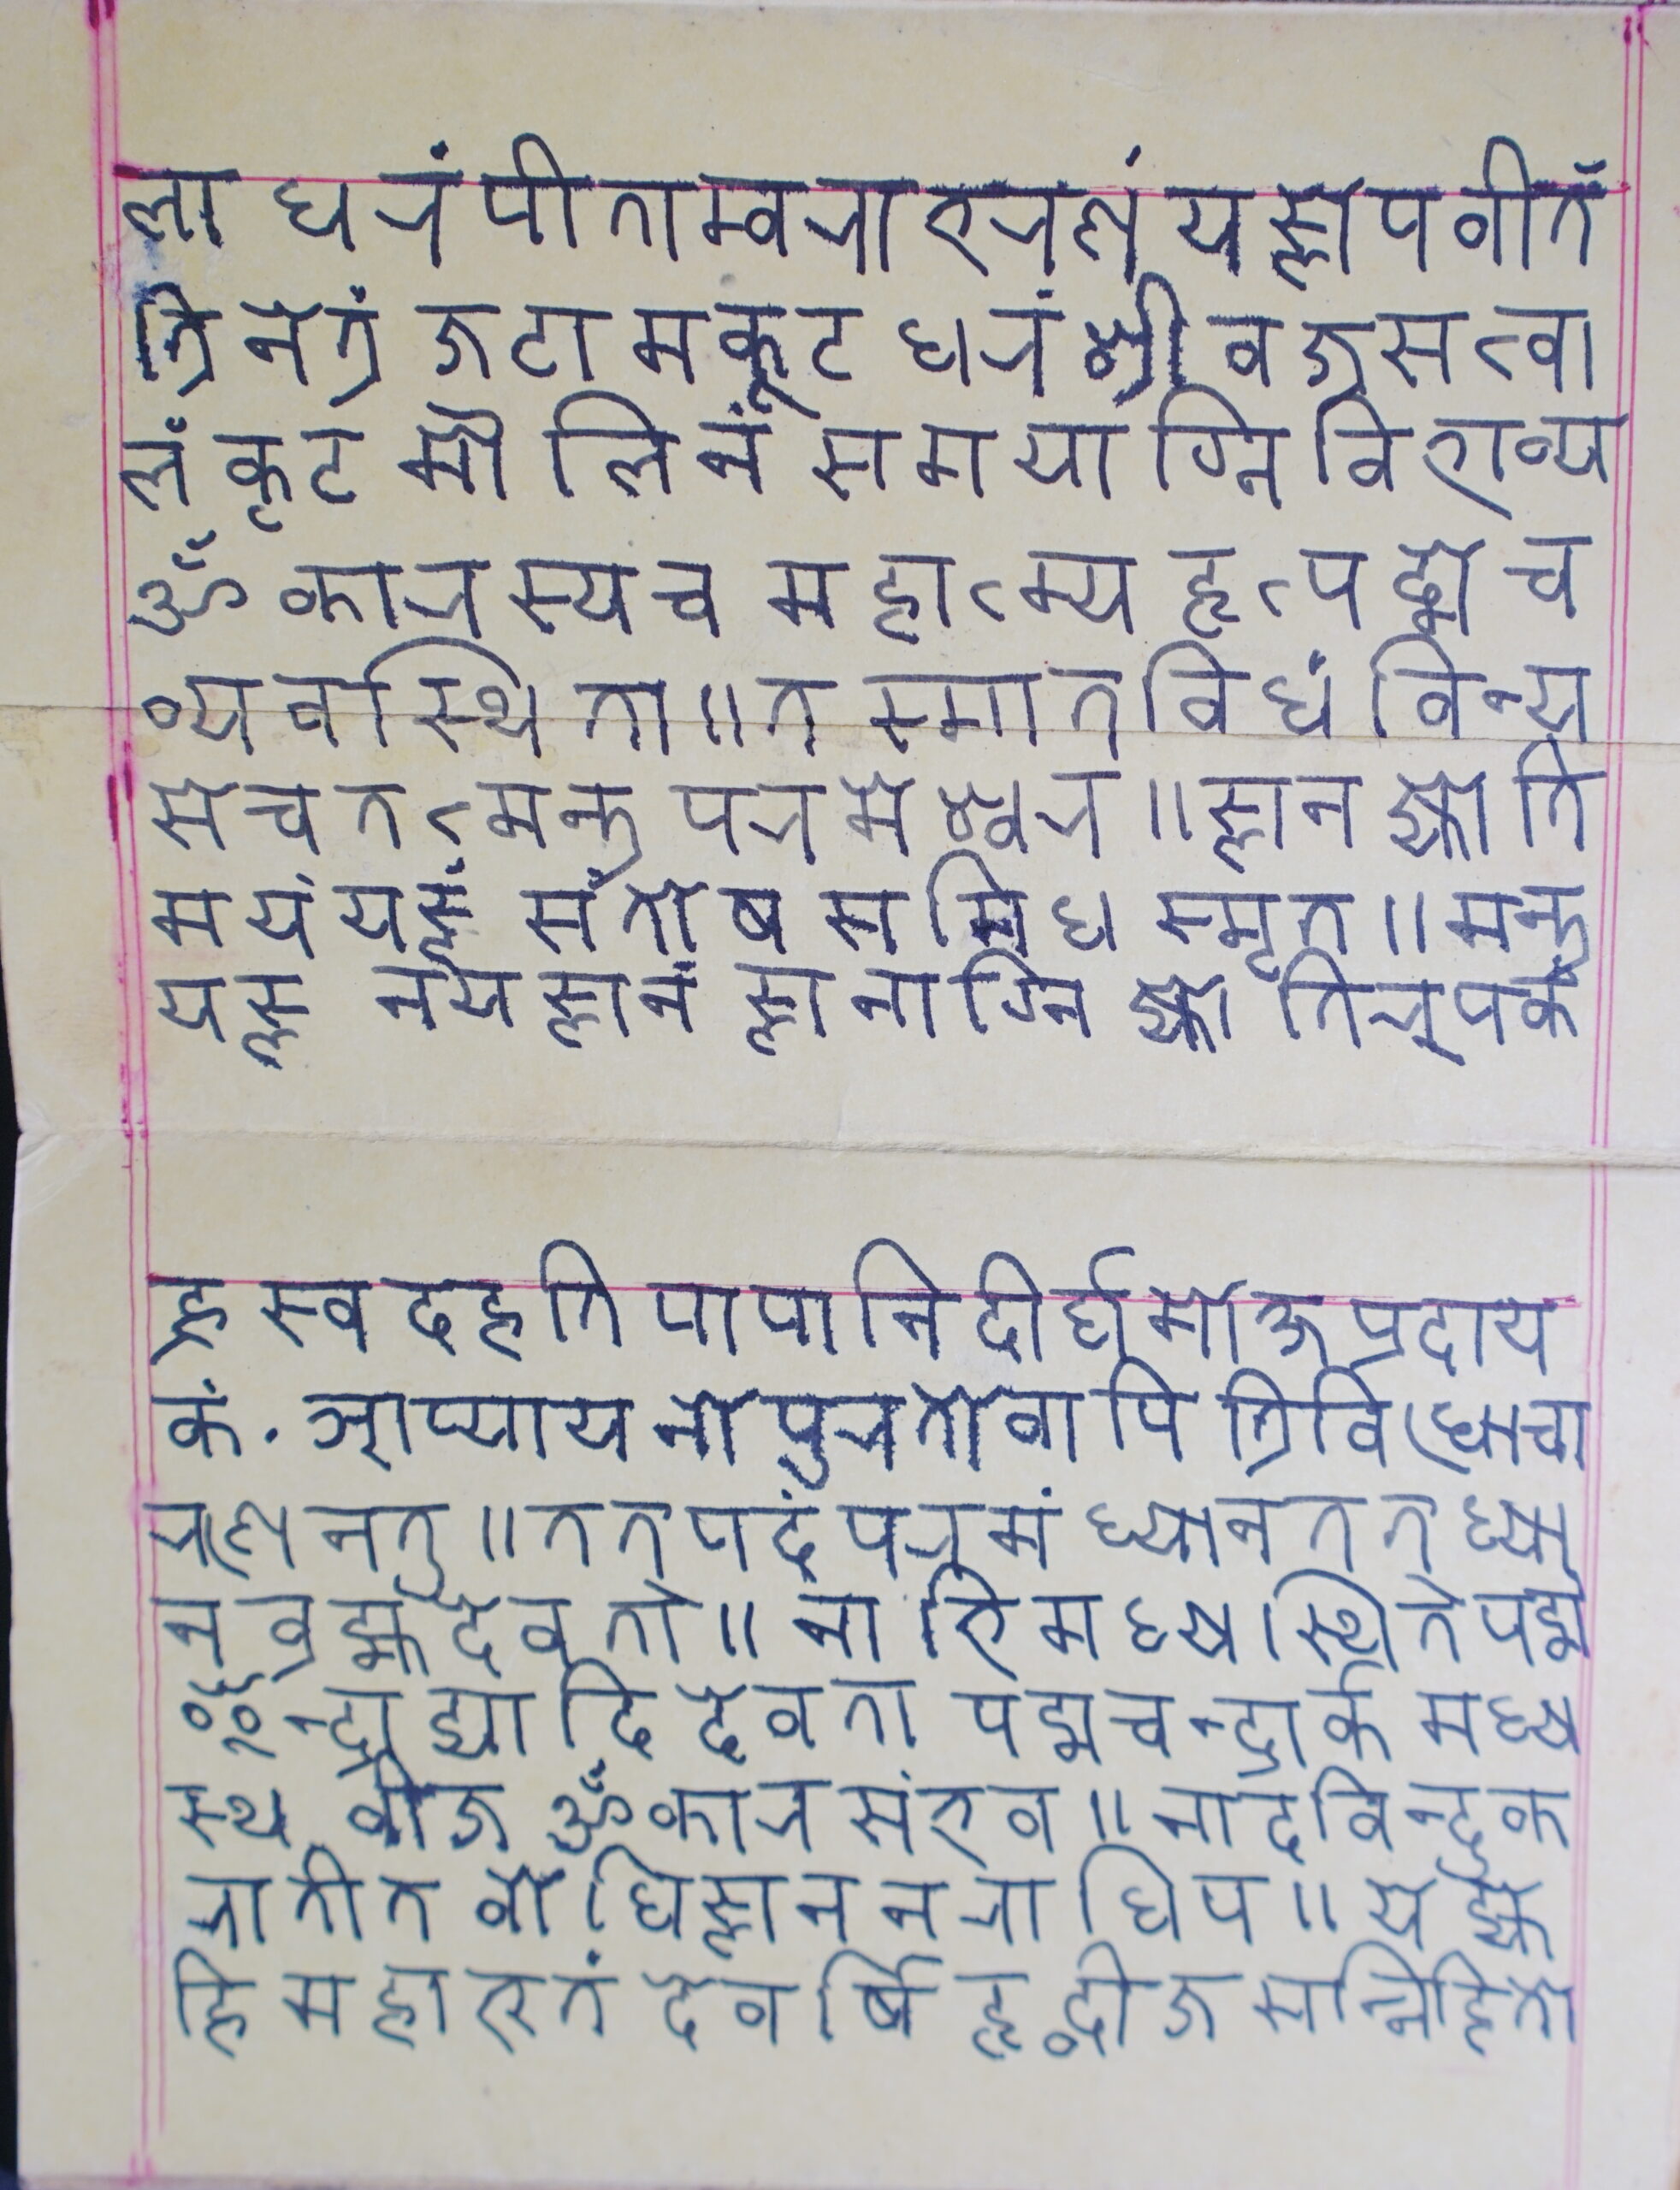 ला धरं पीताम्वराभरणं यज्ञोपवीतँ
त्रिनेत्रं जटामकूट धरं श्री वज्रसत्वा
लं कृट मौलिनं समयाग्नि विभाव्य
ॐ कारस्यच महात्म्य हृत्पद्मे च
व्यवस्थिता॥तस्मात विधं विन्य
सेच तत्मन्त्र परमेश्वर॥ज्ञान ज्योति
मयं यज्ञं संतोष समिध स्मृत॥मन्त्र
यज्ञ नय ज्ञानं ज्ञानाग्नि ज्योतिरूपकं
ह्रस्व दहति पापानि दीर्घ मोक्ष प्रदाय
कं. आप्यायनो पुरतोवापि त्रिविधोचा
रणनतु॥तत पदं परमं ध्यान तत ध्या
न व्रह्मदेवता॥नाभिमध्यस्थिते पद्म
इन्द्राद्यादि देवता पद्मचन्द्रार्क मध्य
स्थ वीज ॐकार संभव॥नादविन्दुक
रातीत वोधिज्ञान नराधिप॥
हि देवर्षि हृद्वीज सन्निहितो